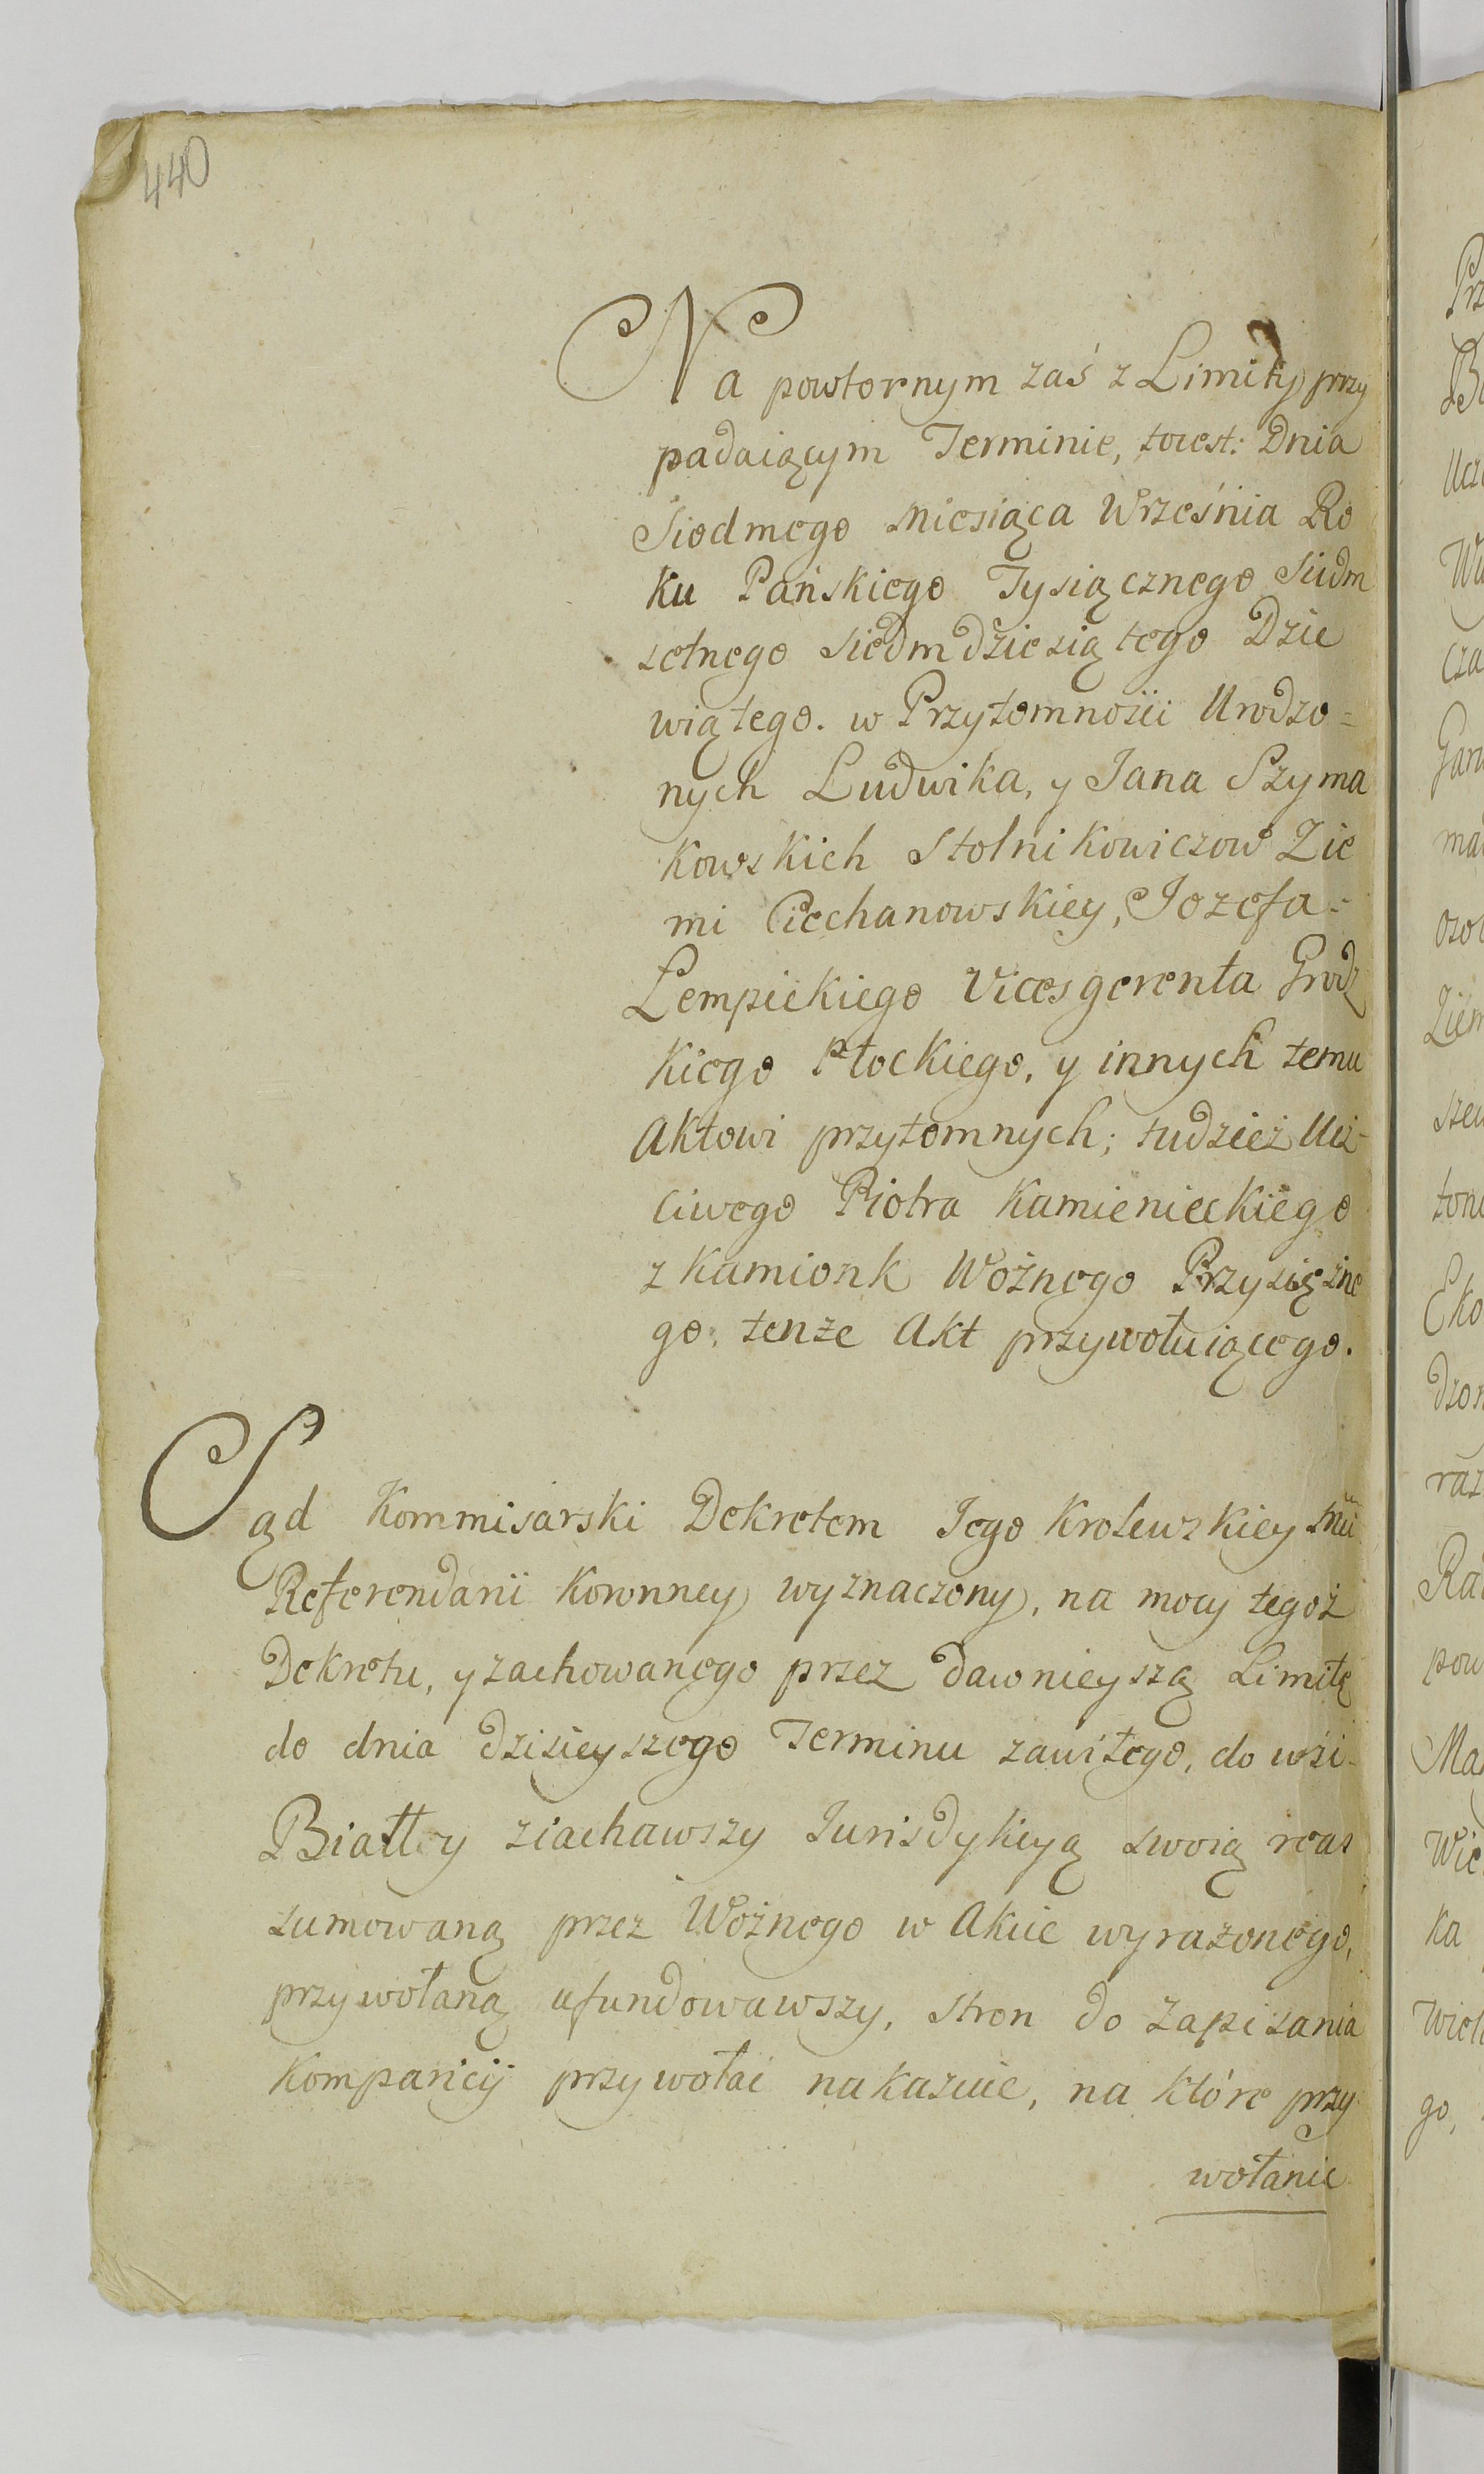 440
Na powtornym zaś z Limity przy
padaiącym Terminie, toiest: Dnia
Siodmego Miesiąca Września Ro
ku Pańskiego Tysiącznego Siedm
setnego Siedmdziesiątego Dzie
wiątego. w Przytomności Urodzo=
nych Ludwika, y Jana Szyma
kowskich Stolnikowiczow Zie
mi Ciechanowskiey, Jozefa=
Łempickiego Vicesgerenta Grodz
kiego Płockiego, y innych temu
Aktowi przytomnych; tudzież Ucz-
ciwego Piotra Kamienieckiego
z Kamionk Woźnego Przysiężne
go, tenże Akt przywołuiącego.
Sąd Kommisarski Dekretem Jego Krolewskiey Mci
Referendarii Koronney wyznaczony, na mocy tegoż
Dekretu, y zachowanego przez dawnieyszą Limitę
do dnia dzisieyszego Terminu zawitego, do wsi
Białłey ziachawszy Jurisdykcyą swoią reas
sumowaną przez Woźnego w Akcie wyrażonego,
przywołaną ufundowawszy, stron do zapisania
Komparicij przywołać nakazuie, na które przy
wołanie